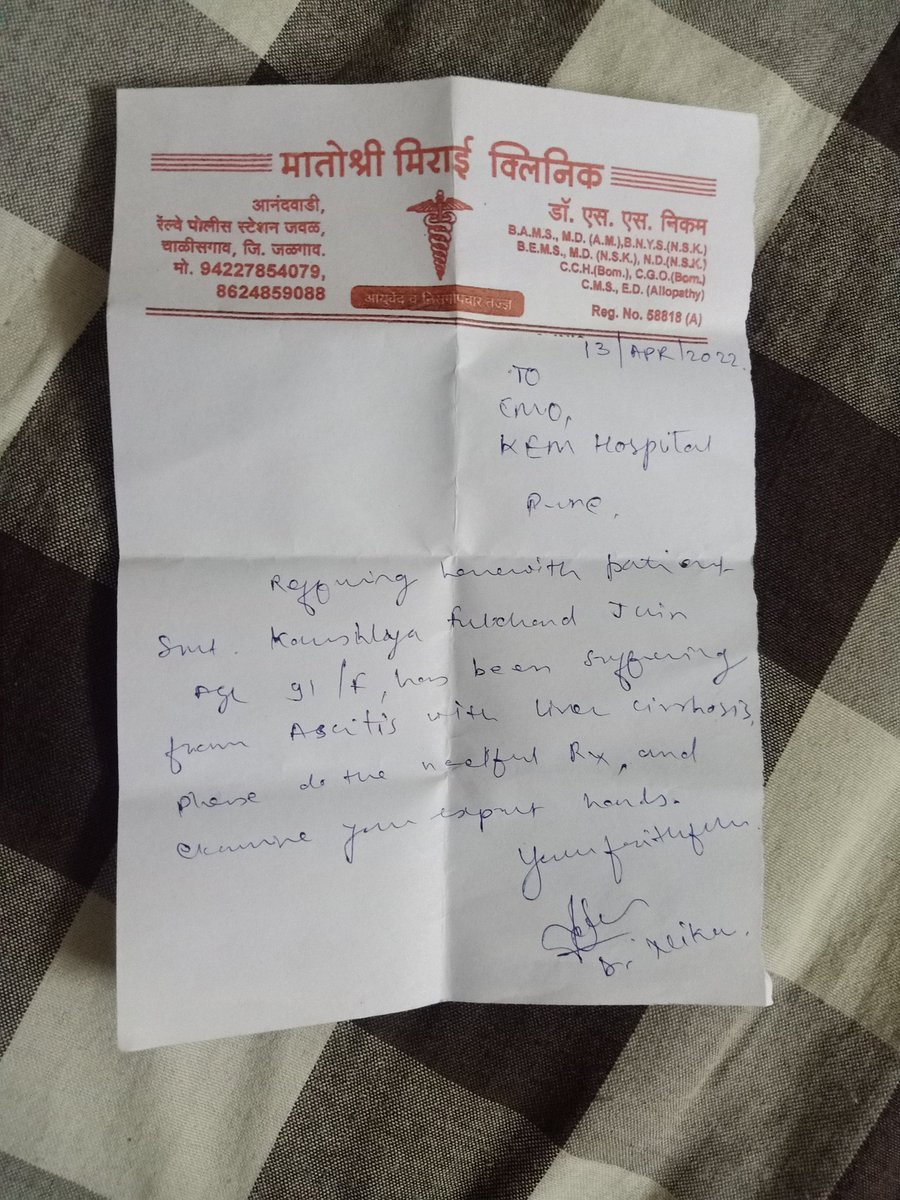 मातोश्री मिराई क्लिनिक
आनंदवाडी,
रेल्वे पोलीस स्टेशन जवळ,
चाळीसगाव, जि. जळगाव.
मो. 94227854079,
8624859088
आयुर्वेद व निसर्गोपचार तज्ज्ञ
डॉ. एस. एस. निकम
B.A.M.S., M.D. (A.M.),B.N.Y.S.(N.S.K.)
B.E.M.S., M.D. (N.S.K.), N.D.(N.S.K.)
C.C.H.(Bom.), C.G.O.(Bom.)
C.M.S., E.D. (Allopathy)
Reg. No. 58818 (A)
13/APR/2022.
TO
CMO,
KEM Hospital
Pune,
Reffering herewith patient
Smt. Kaushlaya Fulchand Jain
Age 91/F, has been suffering
from Ascitis with liver cirrhosis,
please do the needful Rx, and
examine your expert hands.
Your faithfull
Dr.